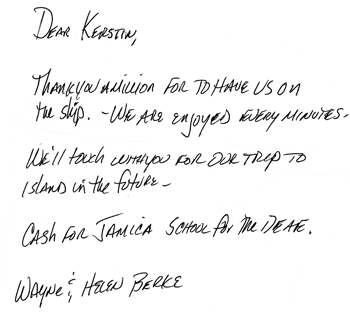 Dear Kerstin,
Thank you a million for to have us on
the ship. - We are enjoyed every minutes.
We'll touch with you for our trip to
Island in the future -
Cash for Jamica School for the Deaf.
Wayne & Helen Berke